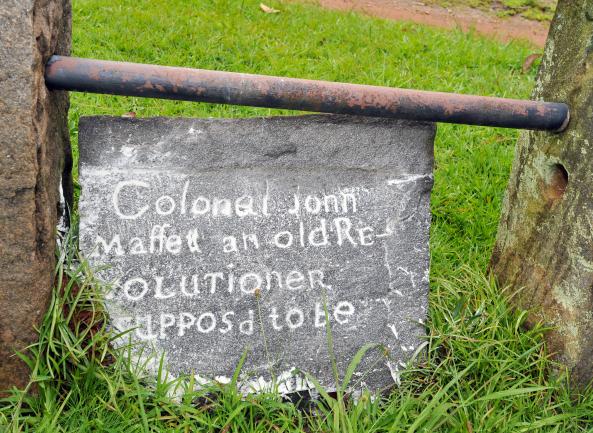 Colonal John
Maffett an old RE-
VOLUTIONER
SUPPOSd to be